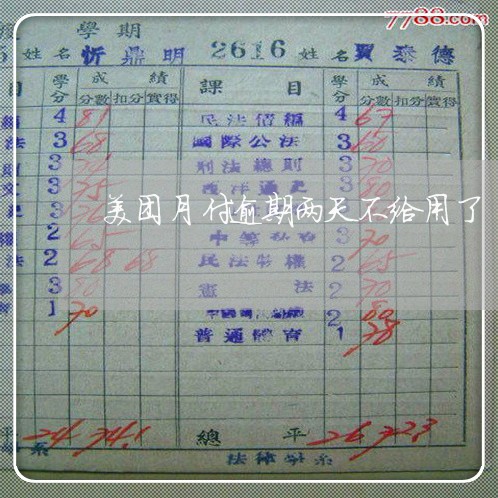 7788.com
學期
姓名 忻鼎明 2616 姓名 賈泰德
目 學分 成績 課目 學分 成績
分數 扣分 實得 分數 扣分 實得
4 81 民法債編 4 67
法 3 68 國際公法 3 60
3 刑法總則 3 70
3 75 西洋通史 3 80
美团月付逾期两天不给用了
2 65 3 70
法 2 68 68 民法物權 2 65
3 80 憲法 2 70
1 70 2 80
普通體育 1 78
平 24 74.1 總平 26 72.3
系 法律學系